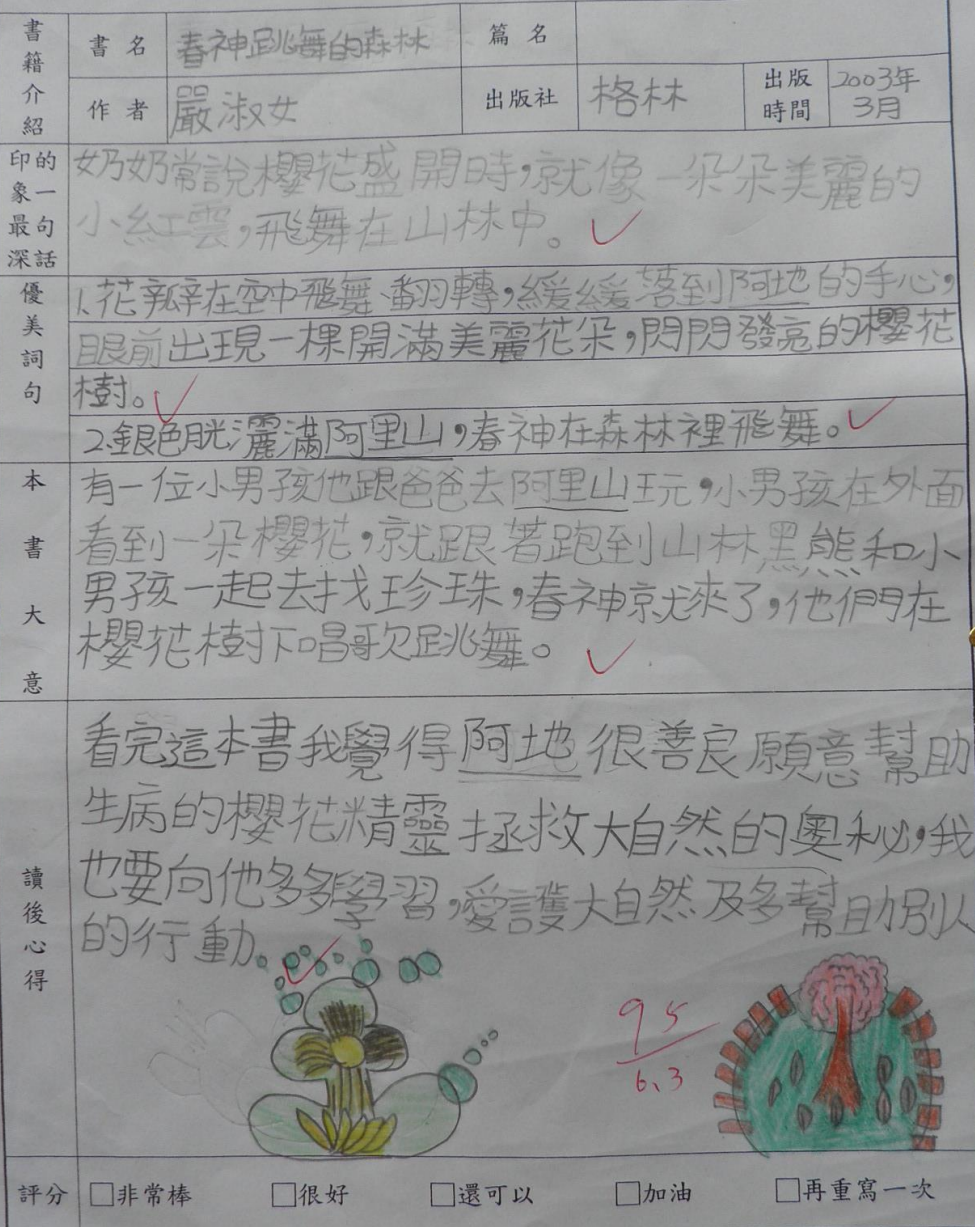 書籍介紹
書名 春神跳舞的森林 篇名
作者 嚴淑女 出版社 格林 出版時間 2003年3月
印象最深的一句話
奶奶常說櫻花盛開時,就像一朵朵美麗的
小紅雲,飛舞在山林中。
優美詞句
1.花瓣在空中飛舞、翻轉,緩緩落到阿地的手心,
眼前出現一棵開滿美麗花朵,閃閃發亮的櫻花
樹。
2.銀色月光灑滿阿里山,春神在森林裡飛舞。
本書大意
有一位小男孩他跟爸爸去阿里山玩,小男孩在外面
看到一朵櫻花,就跟著跑到山林黑熊和小
男孩一起去找珍珠,春神就來了,他們在
櫻花樹下唱歌跳舞。
讀後心得
看完這本書我覺得阿地很善良願意幫助
生病的櫻花精靈拯救大自然的奧秘,我
也要向他多多學習,愛護大自然及多幫助別人
的行動。
95
6.3
評分 □非常棒 □很好 □還可以 □加油 □再重寫一次